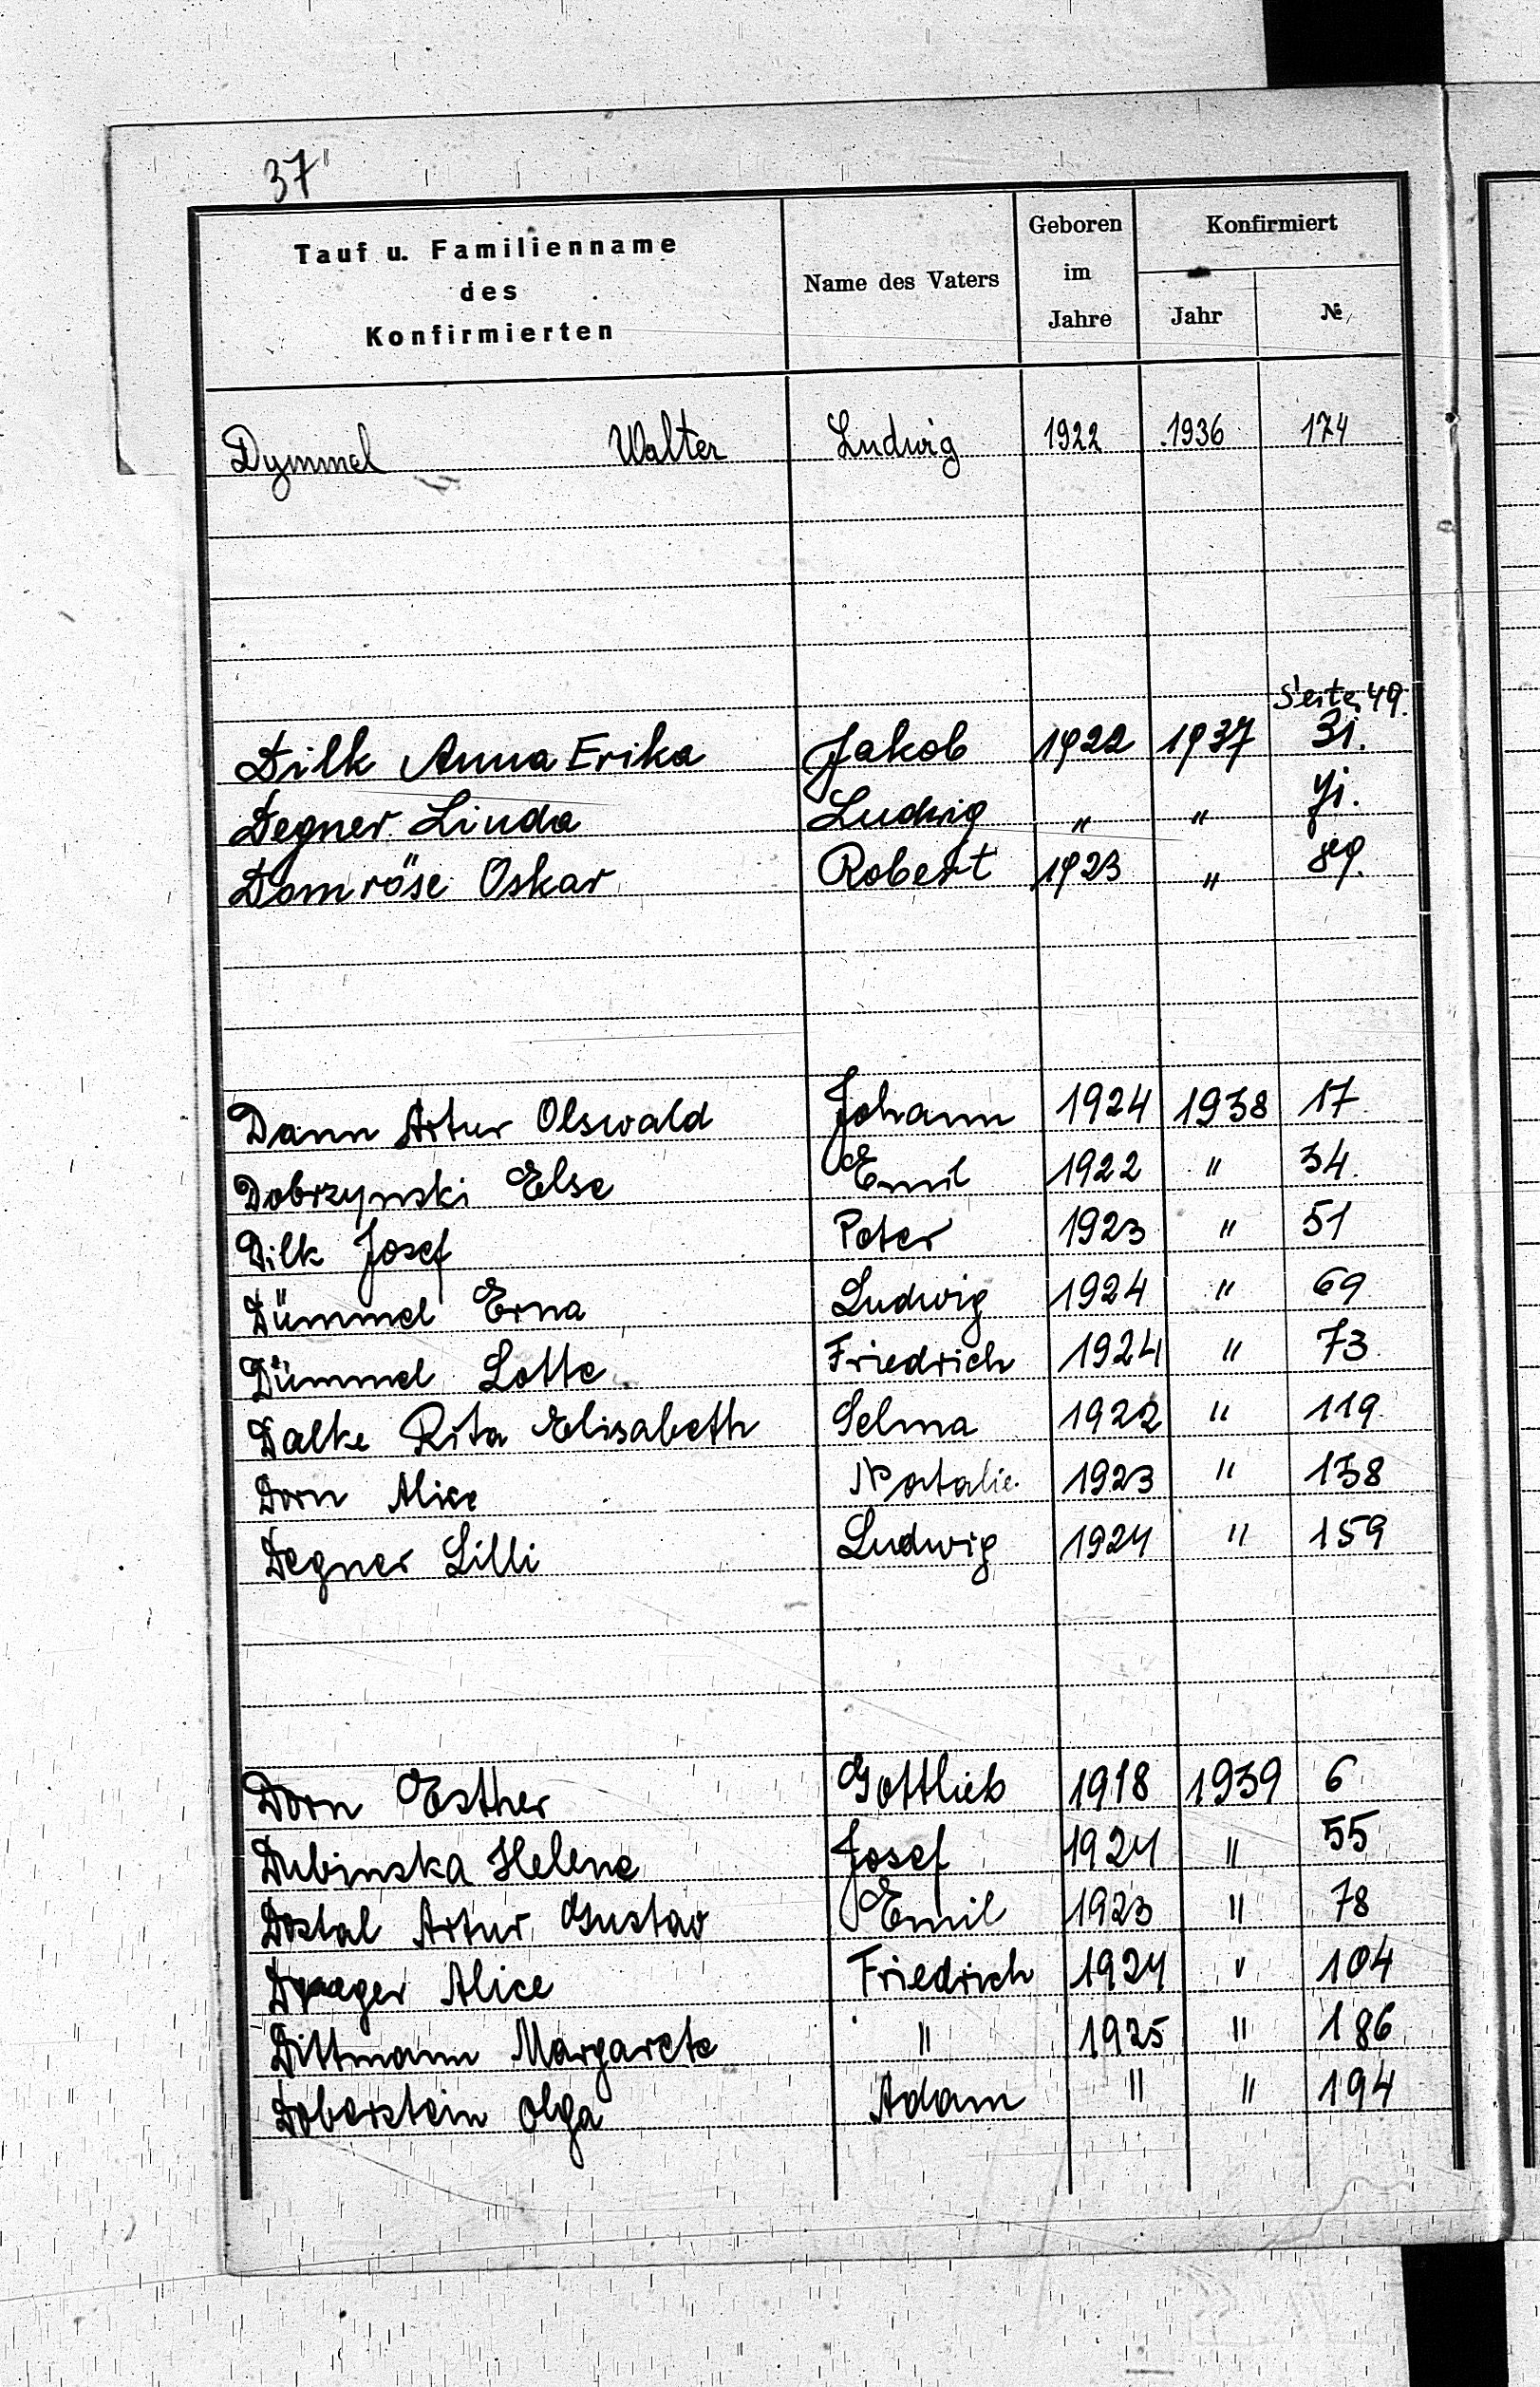 37
Tauf u. Familienname
des
Konfirmierten
Name des Vaters
Geboren
im
Jahre
Konfirmiert
Jahr
№
Dymmel Walter Ludwig 1922 1936 174
Seite 49.
Dilk Anna Erika Jakob 1922 1937 31.
Degner Linda Ludwig " "
Domröse Oskar Robert 1923 " 89.
Dann Artur Olswald Johann 1924 1938 17
Dobrzynski Else Emil 1922 " 34.
Dilk Josef Peter 1923 " 51
Dümmel Erna Ludwig 1924 " 69
Dümmel Lotte Friedrich 1924 " 73
Dalke Rita Elisabeth Selma 1922 " 119
Dorn Alice Natalie 1923 " 138
Degner Lilli Ludwig 1924 " 159
Dorn Esther Gottlieb 1918 1939 6
Dubinska Helene Josef 1924 " 55
Dostal Artur Gustav Emil 1923 " 78
Draeger Alice Friedrich 1924 " 104
Dittmann Margarete " 1925 " 186
Doberstein Olga Adam " " 194